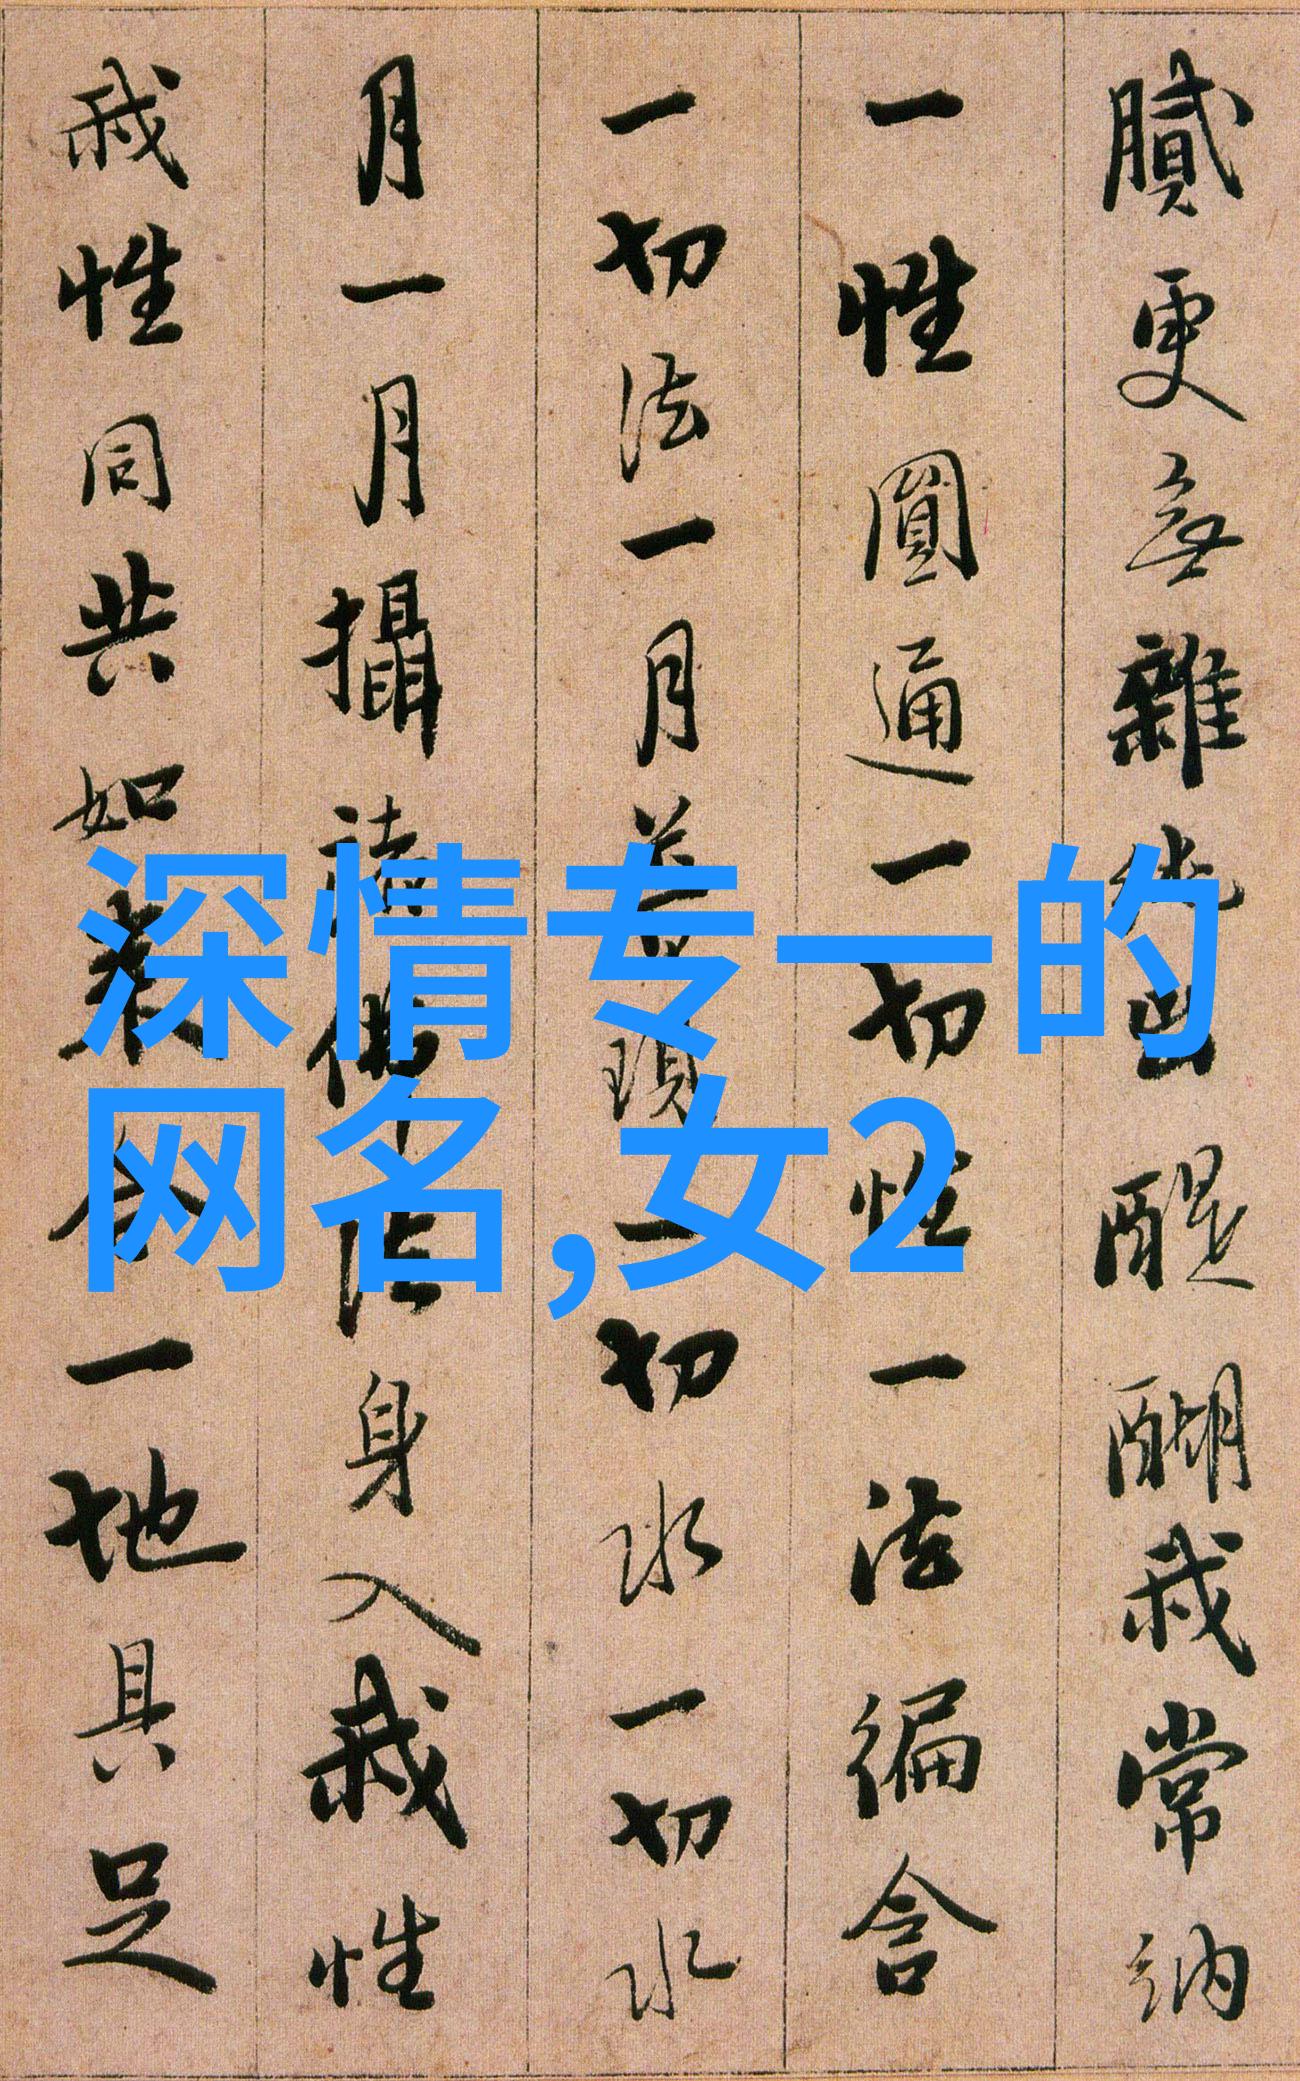 膩更無雜純出醍醐我常納
一性圓通一切性一法徧含
一切法一月普現一切水一切水
月一月攝諸佛法身入我性
我性同共如來合一地具足
深情专一的
网名,女2